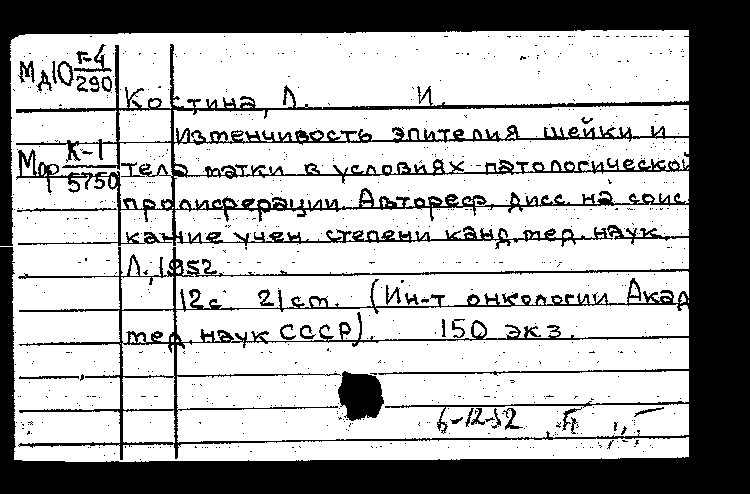 Мд10 г-4/290
Костина, Л. И.
Изменчивость эпителия шейки и
Мпр К-1/5750 тела матки в условиях патологической
пролиферации. Автореф. дисс. на соис-
кание учен. степени канд. мед. наук.
Л., 1952.
12с. 21 см. (Ин-т онкологии Акад.
мед. наук СССР). 150 экз.
6-12-52